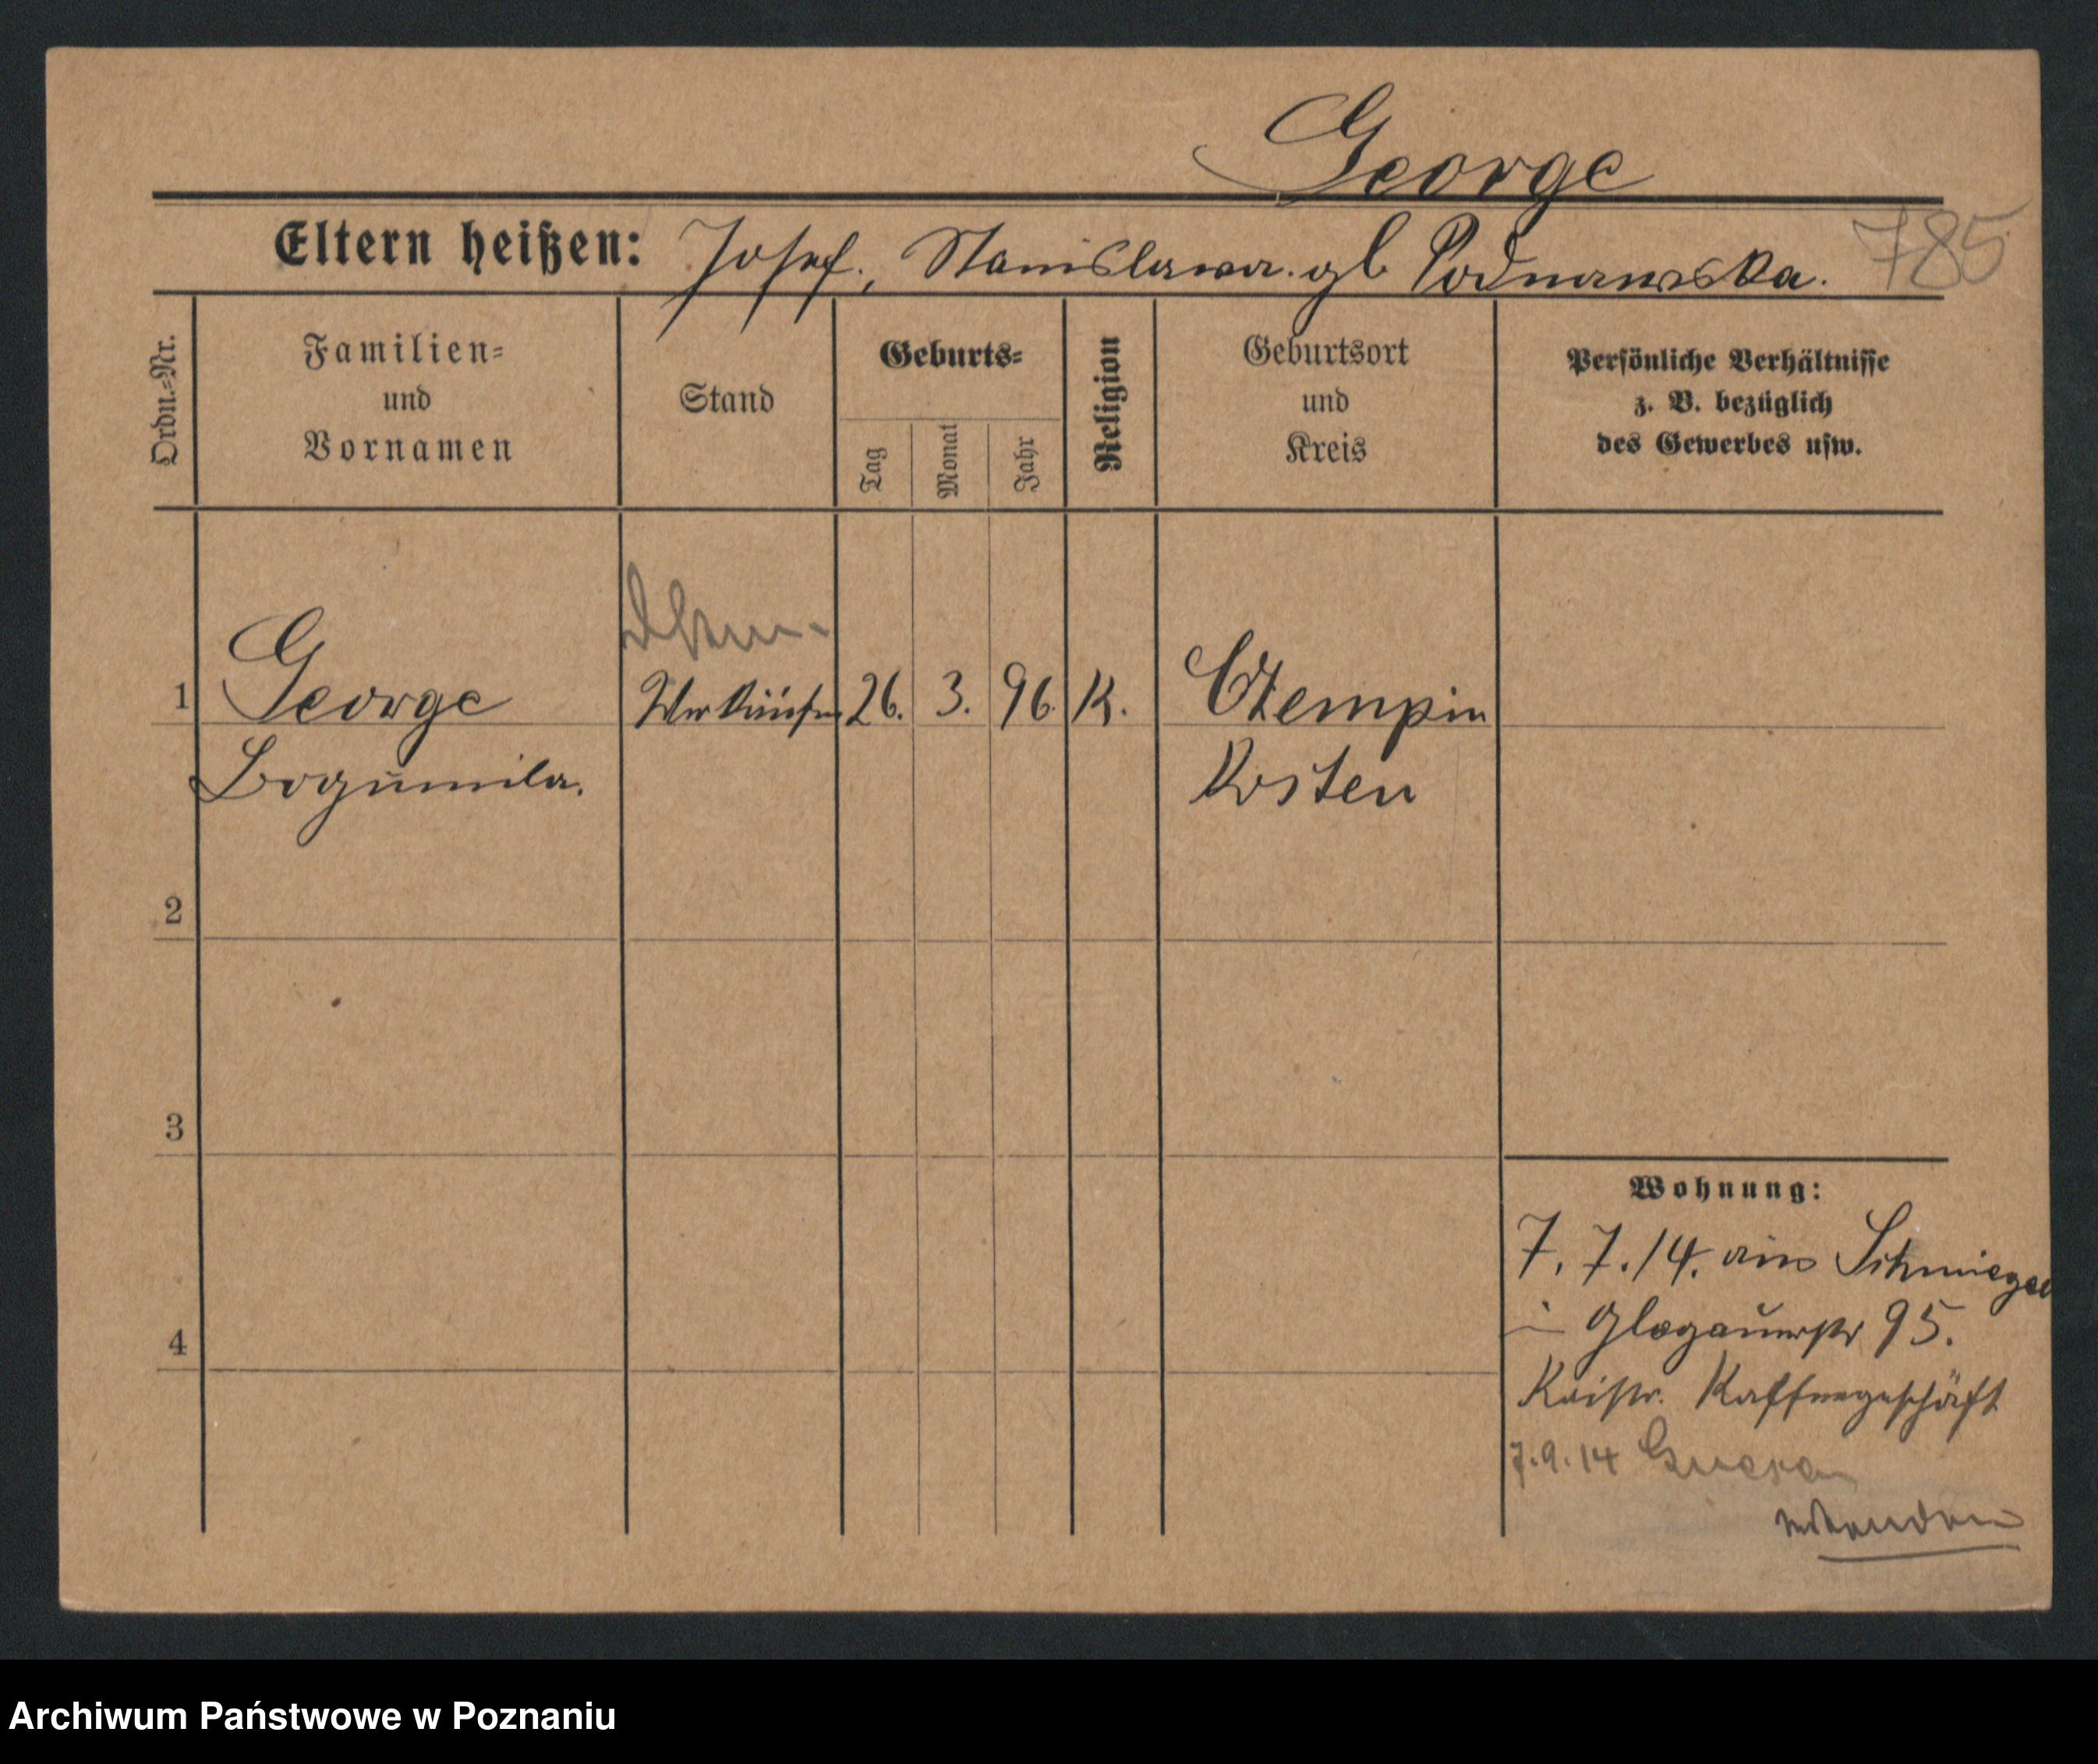 George
785
Eltern heißen: Josef, Stanislawa gb Podnawska.
Ordn.-Nr.
Familien-
und
Vornamen
Stand
Geburts-
Tag
Monat
Jahr
Religion
Geburtsort
und
Kreis
Persönliche Verhältnisse
z. B. bezüglich
des Gewerbes usw.
1 George 26. 3. 96. K. Czempin
Bogumila. Kosten
2
3
4
Wohnung:
7. 7. 14. aus Schmiegel
Glogauerstr 95.
Kaisrs. Kaffeegeschäft
7.9.14 Gnesen
wenden
Archiwum Państwowe w Poznaniu